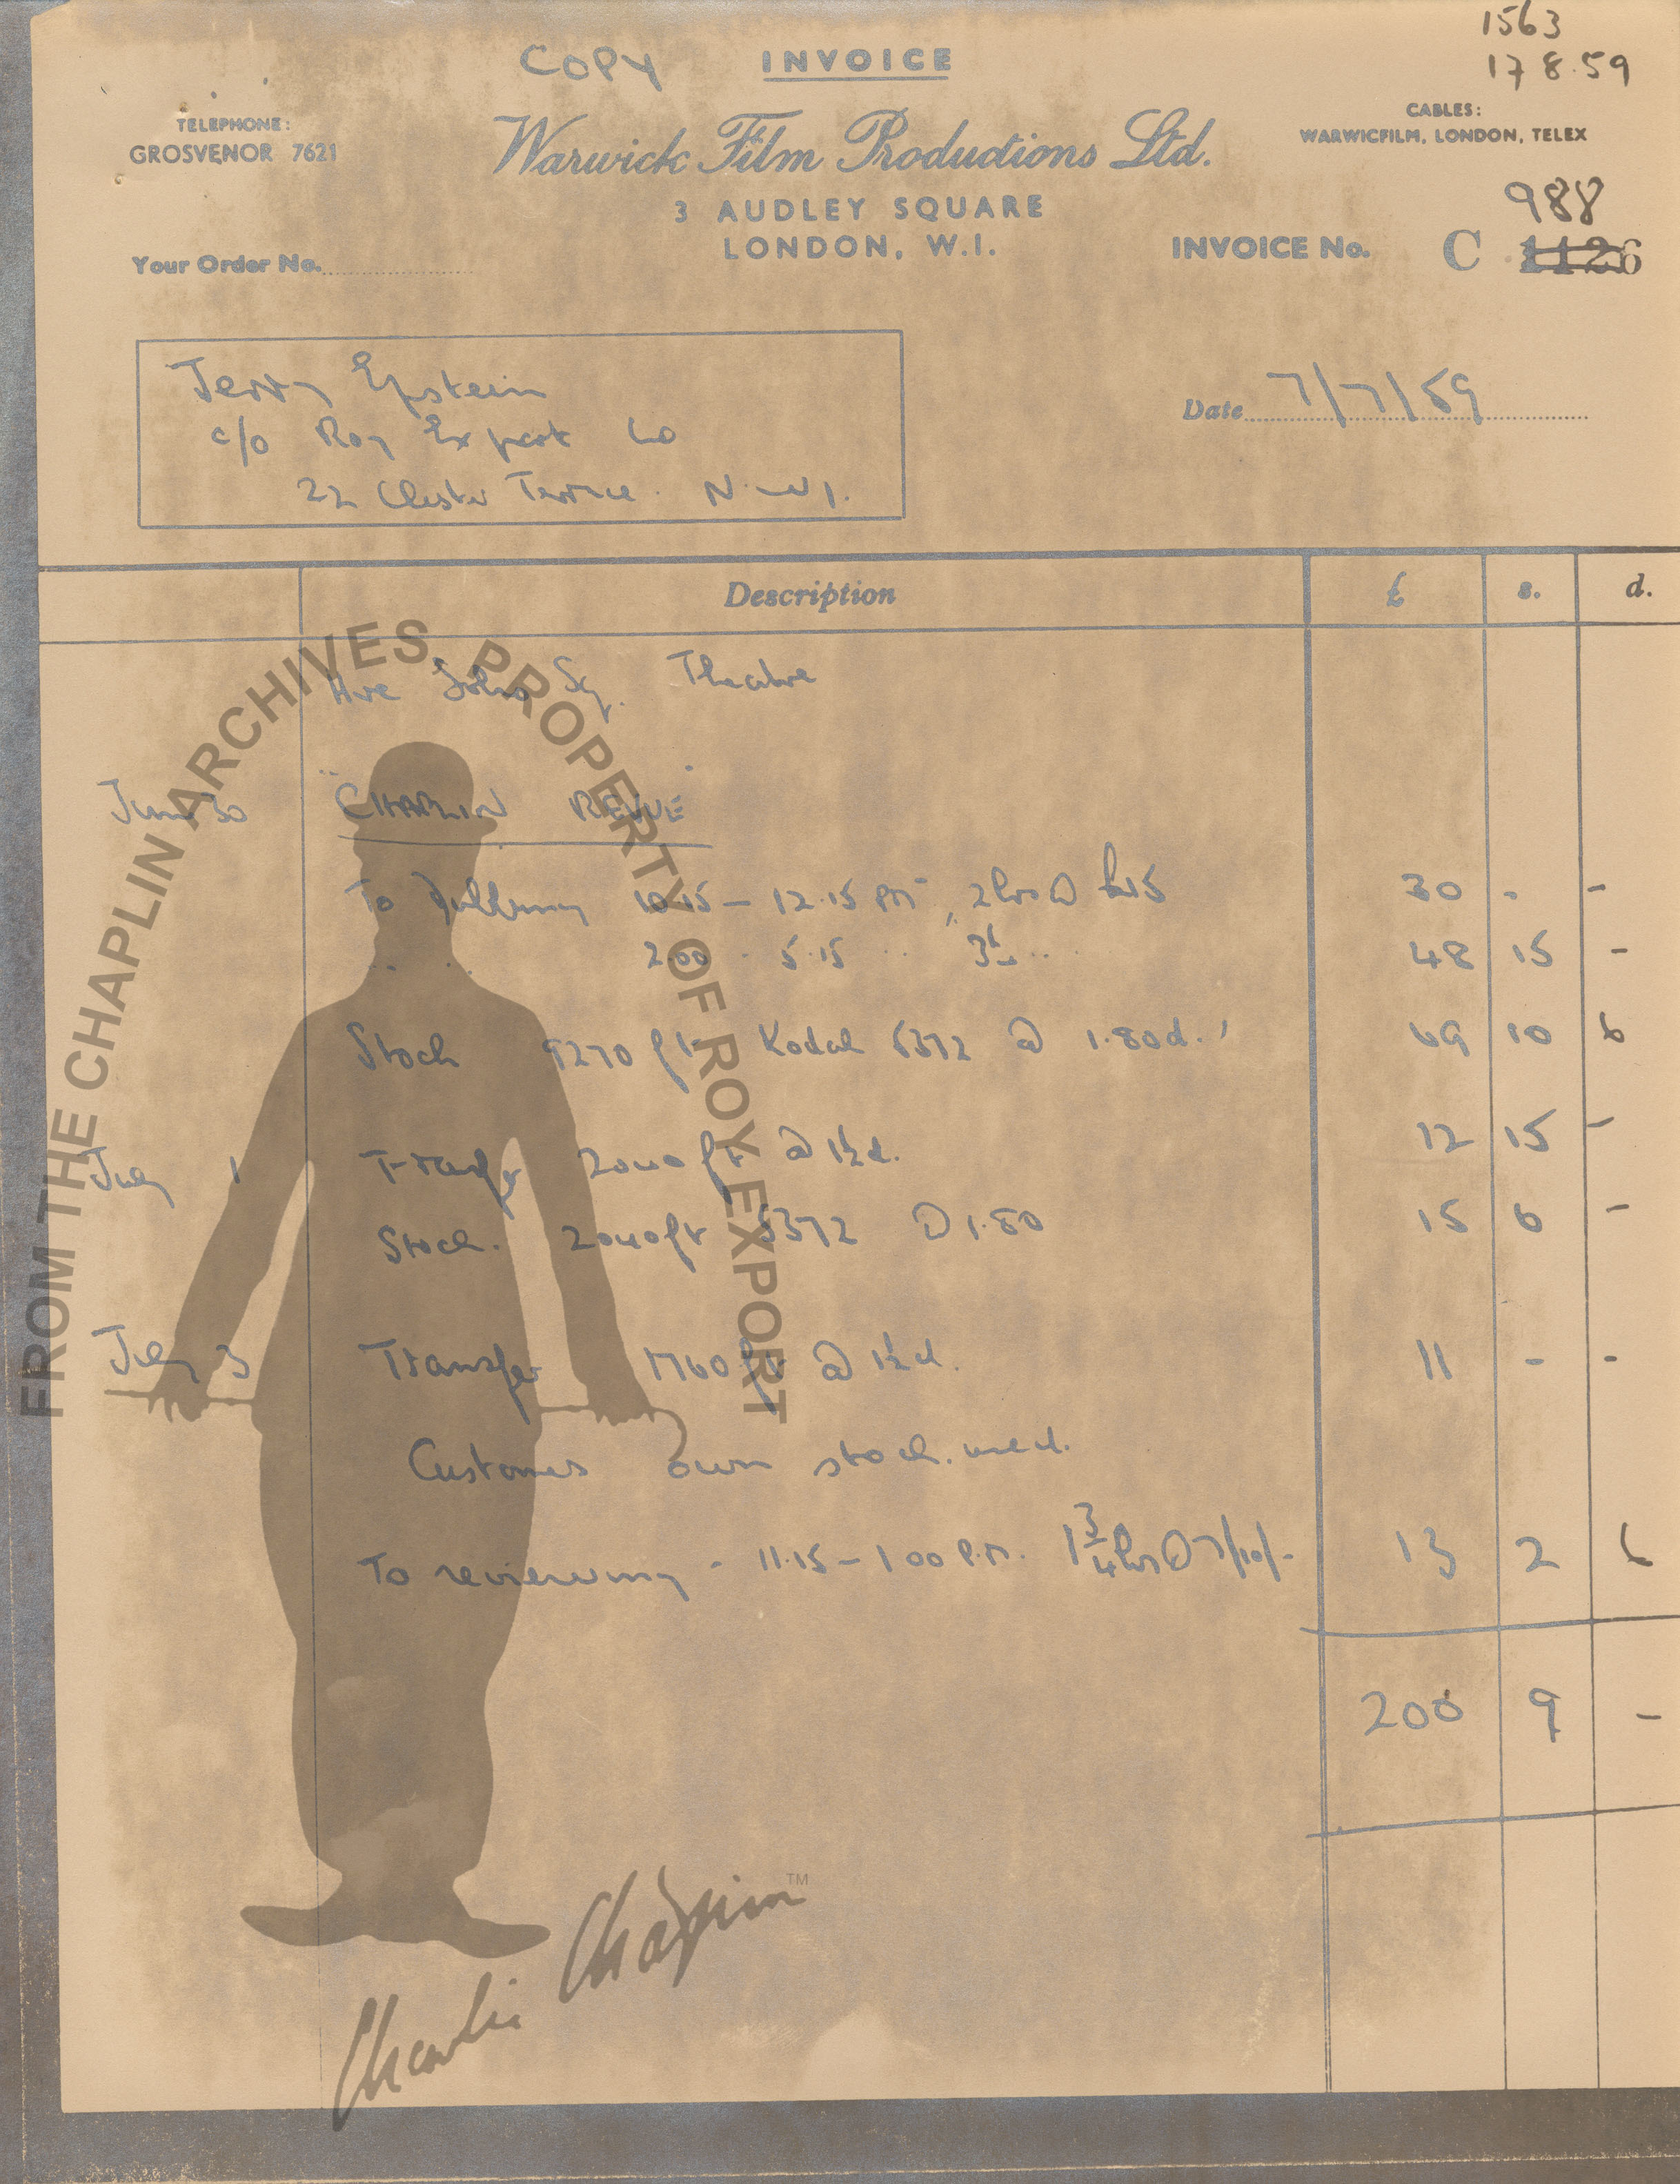 1563
17 8.59
COPY INVOICE
TELEPHONE:
GROSVENOR 7621
Warwick Film Productions Ltd.
3 AUDLEY SQUARE
LONDON, W.I.
CABLES:
WARWICFILM, LONDON, TELEX
988
Your Order No.
INVOICE No. C 1126
Jerry Epstein
c/o Roy Export Co
22 Chester Terrace. N.W1.
Date 7/7/59
Description £ s. d.
Hire Soho Sq. Theatre
June 30 "CHAPLIN REVUE"
To dubbing 10.15 – 12.15 PM 2 hrs @ £15 30 - -
" " 2.00 - 5.15 " 3¼ " 48 15 -
Stock 9270 ft Kodak 5372 @ 1.80d. 69 10 6
July 1 Transfer 2040 ft @ 1½d. 12 15 -
Stock. 2040 ft 5372 @ 1.80 15 6 -
July 3 Transfer 1760 ft @ 1½d. 11 - -
Customers own stock. used.
To reviewing - 11.15 – 1 00 P.M. 1¾ hrs @ 7/10/- 13 2 6
200 9 -
FROM THE CHAPLIN ARCHIVES PROPERTY OF ROY EXPORT
Charlie Chaplin™